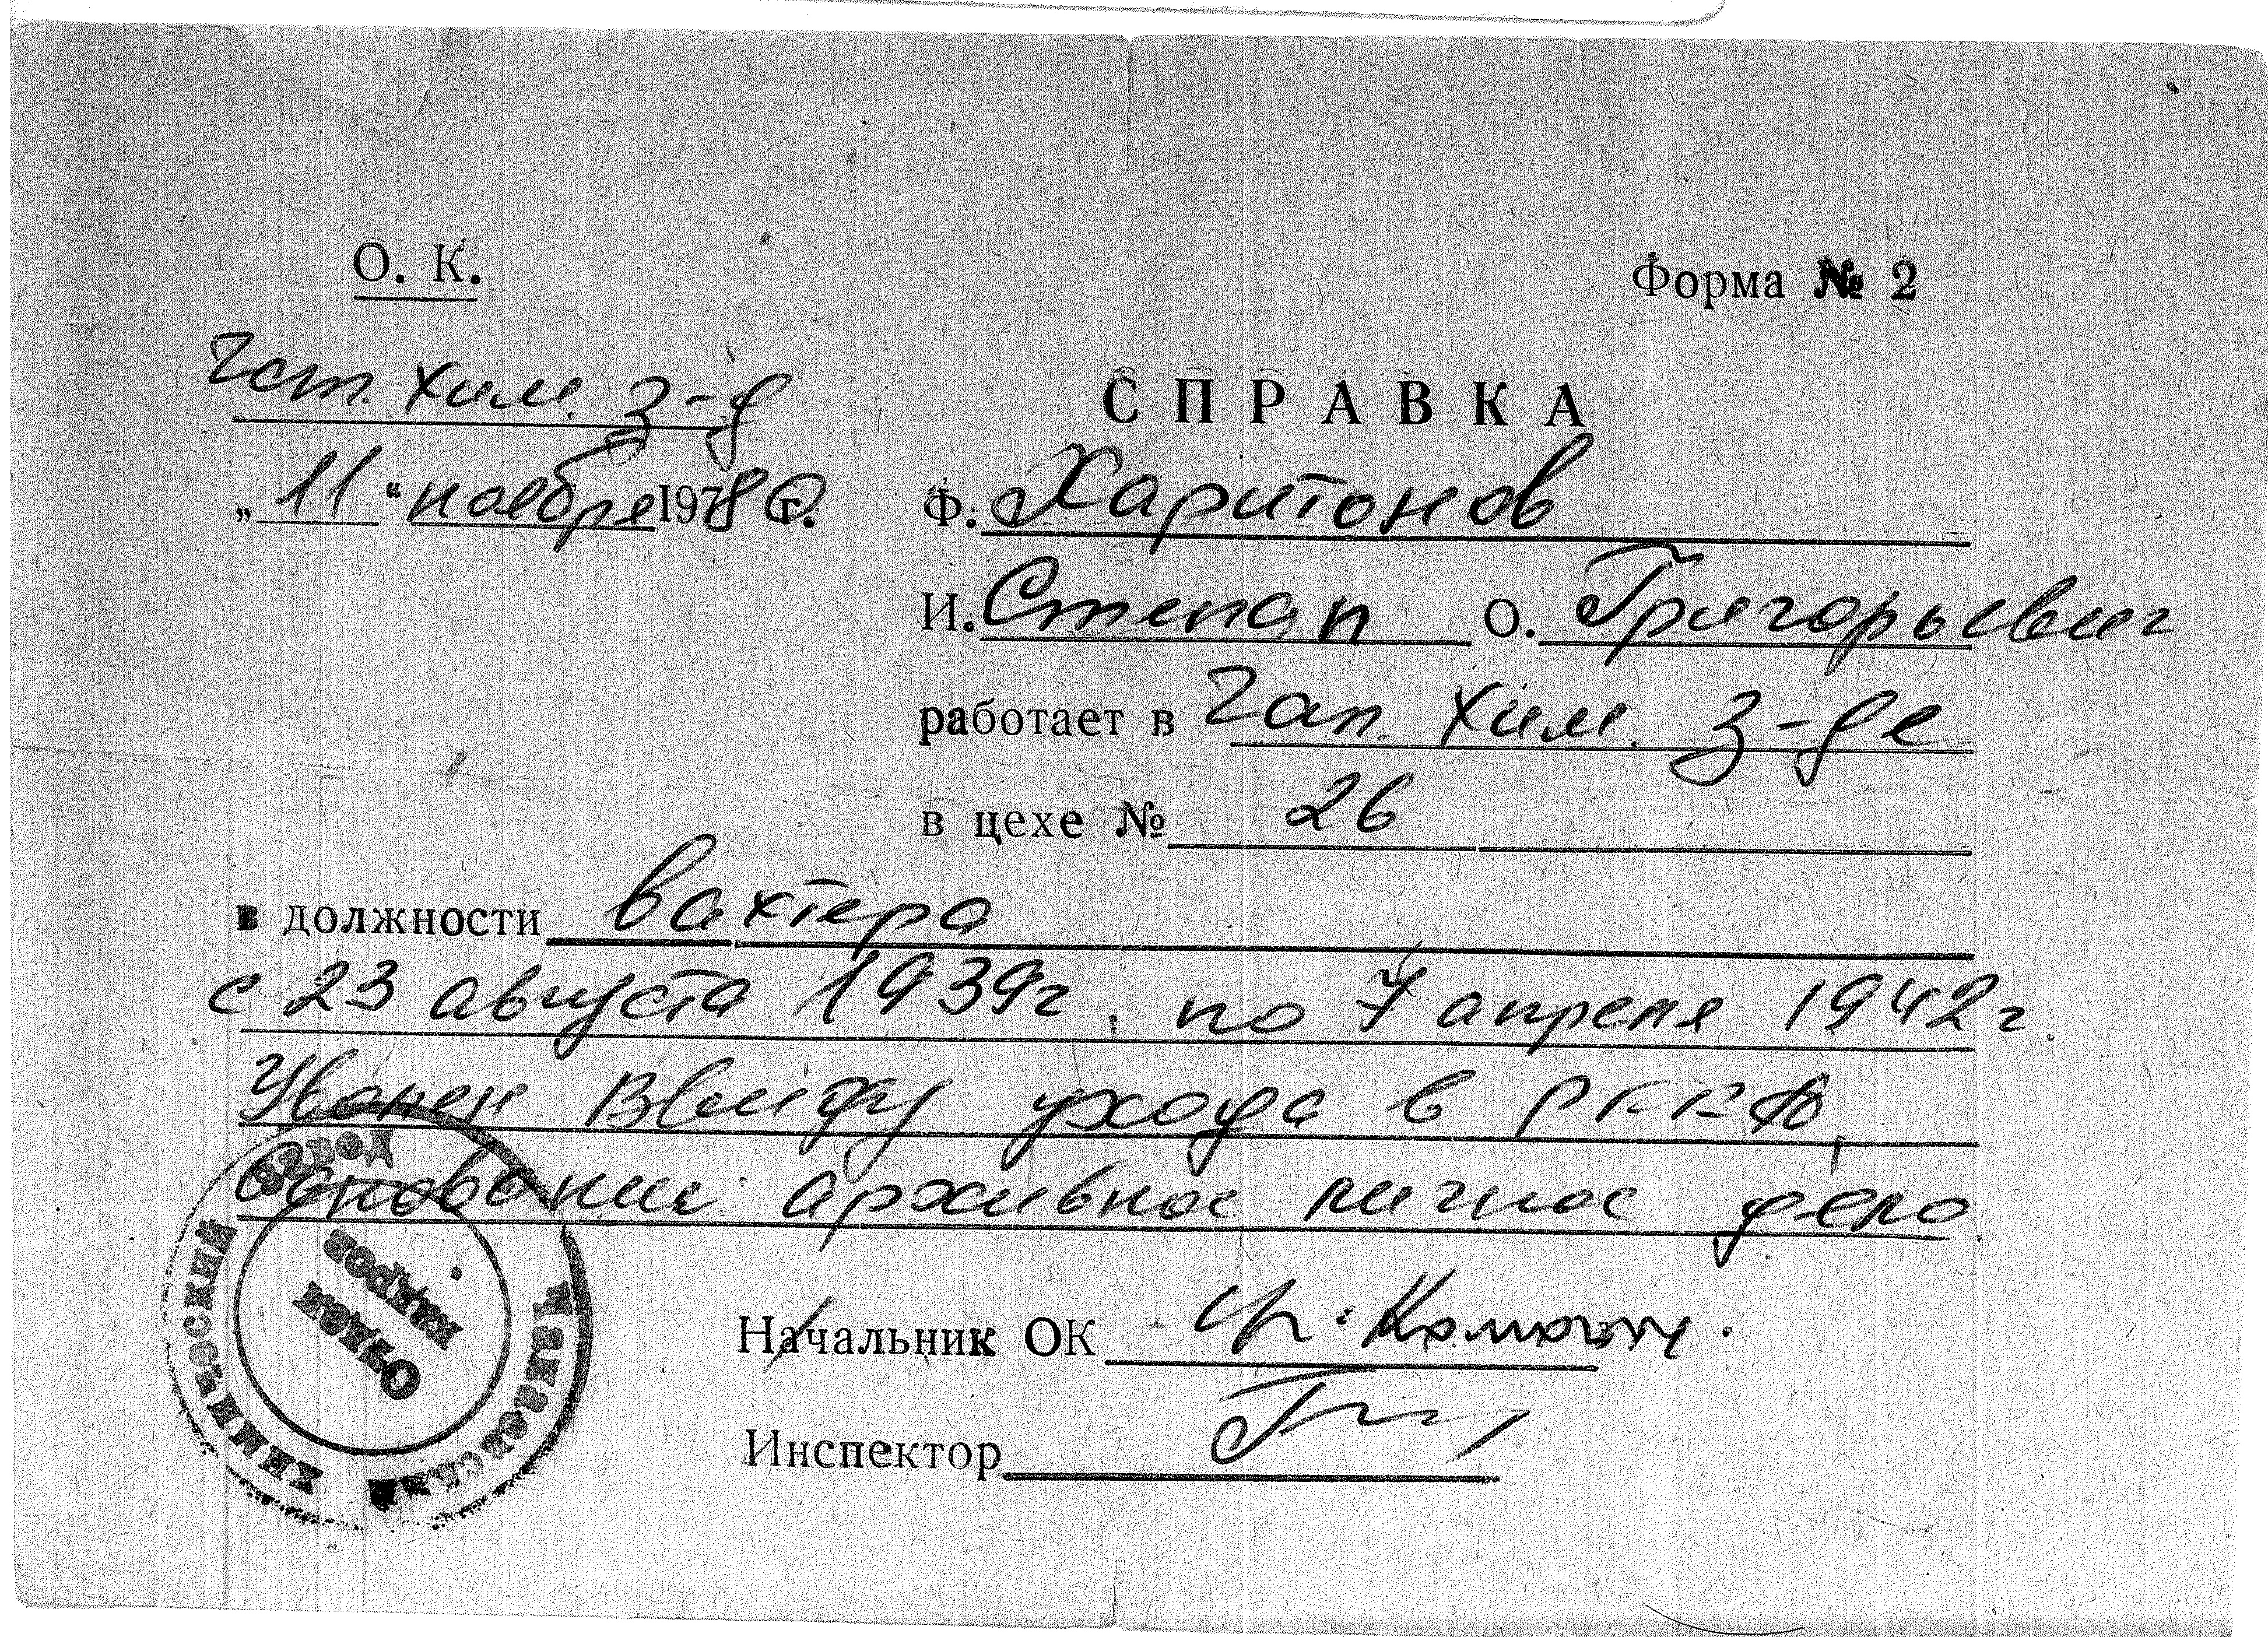 О. К.
Форма № 2
Чап. хим. з-д
СПРАВКА
„ 11 “ ноября 1980 г.
Ф. Харитонов
И. Степан О. Григорьевич
работает в Чап. хим. з-де
в цехе № 26
в должности вахтера
с 23 августа 1939г. по 7 апреля 1942г.
Уволен ввиду ухода в РККА,
Основание архивное личное дело
Начальник ОК
Инспектор
Чапаевский химический завод
Отдел
кадров